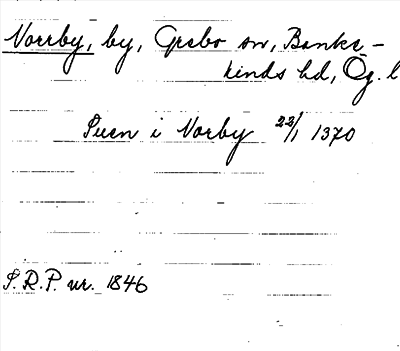 Norrby, by, Grebo sn, Banke-
kinds hd, Ög. l
Suen i Norby 22/1 1370
S.R.P. nr. 1846